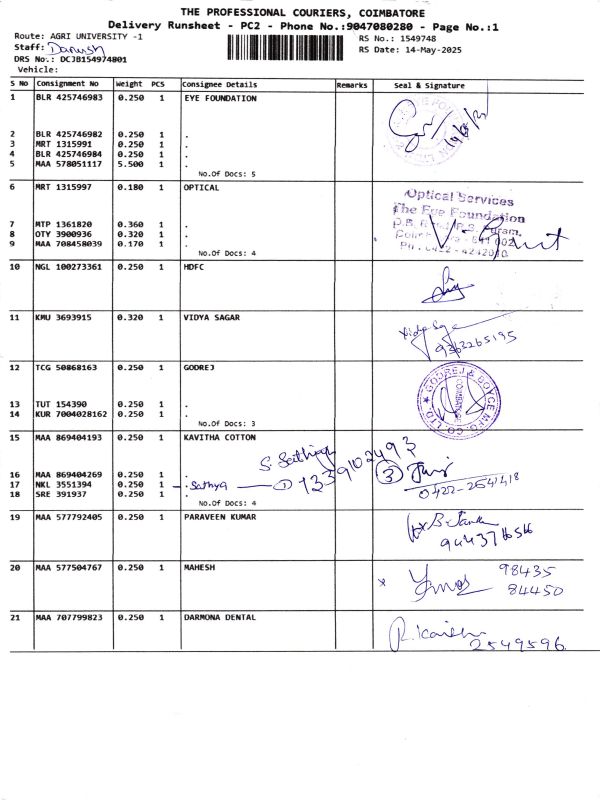 THE PROFESSIONAL COURIERS, COIMBATORE
Delivery Runsheet - PC2 - Phone No.:9047080280 - Page No.:1
Route: AGRI UNIVERSITY -1
RS No.: 1549748
Staff: Danush
RS Date: 14-May-2025
DRS No.: DCJB154974801
Vehicle:
S No Consignment No Weight PCS Consignee Details Remarks Seal & Signature
1 BLR 425746983 0.250 1 EYE FOUNDATION
2 BLR 425746982 0.250 1 .
3 MRT 1315991 0.250 1 .
4 BLR 425746984 0.250 1 .
5 MAA 578051117 5.500 1 .
No.Of Docs: 5
6 MRT 1315997 0.180 1 OPTICAL
Optical Services
The Eye Foundation
7 MTP 1361820 0.360 1 .
8 OTY 3900936 0.320 1 .
9 MAA 708458039 0.170 1 .
No.Of Docs: 4
10 NGL 100273361 0.250 1 HDFC
11 KMU 3693915 0.320 1 VIDYA SAGAR
9362265195
12 TCG 50868163 0.250 1 GODREJ
GODREJ & BOYCE MFG. CO. LTD.
13 TUT 154390 0.250 1 .
14 KUR 7004028162 0.250 1 .
No.Of Docs: 3
15 MAA 869404193 0.250 1 KAVITHA COTTON
16 MAA 869404269 0.250 1 .
17 NKL 3551394 0.250 1 . Sathya
18 SRE 391937 0.250 1 .
0422-2541418
No.Of Docs: 4
19 MAA 577792405 0.250 1 PARAVEEN KUMAR
20 MAA 577504767 0.250 1 MAHESH
98435
84450
21 MAA 707799823 0.250 1 DARMONA DENTAL
2549596